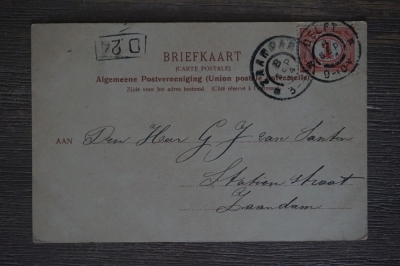 D.24
BRIEFKAART
(CARTE POSTALE)
DELFT
Algemeene Postvereeniging (Union postale universelle)
Zijde voor het adres bestemd. (Côté réservé à
AAN Den Heer G J van Santen
Station straat
Zaandam